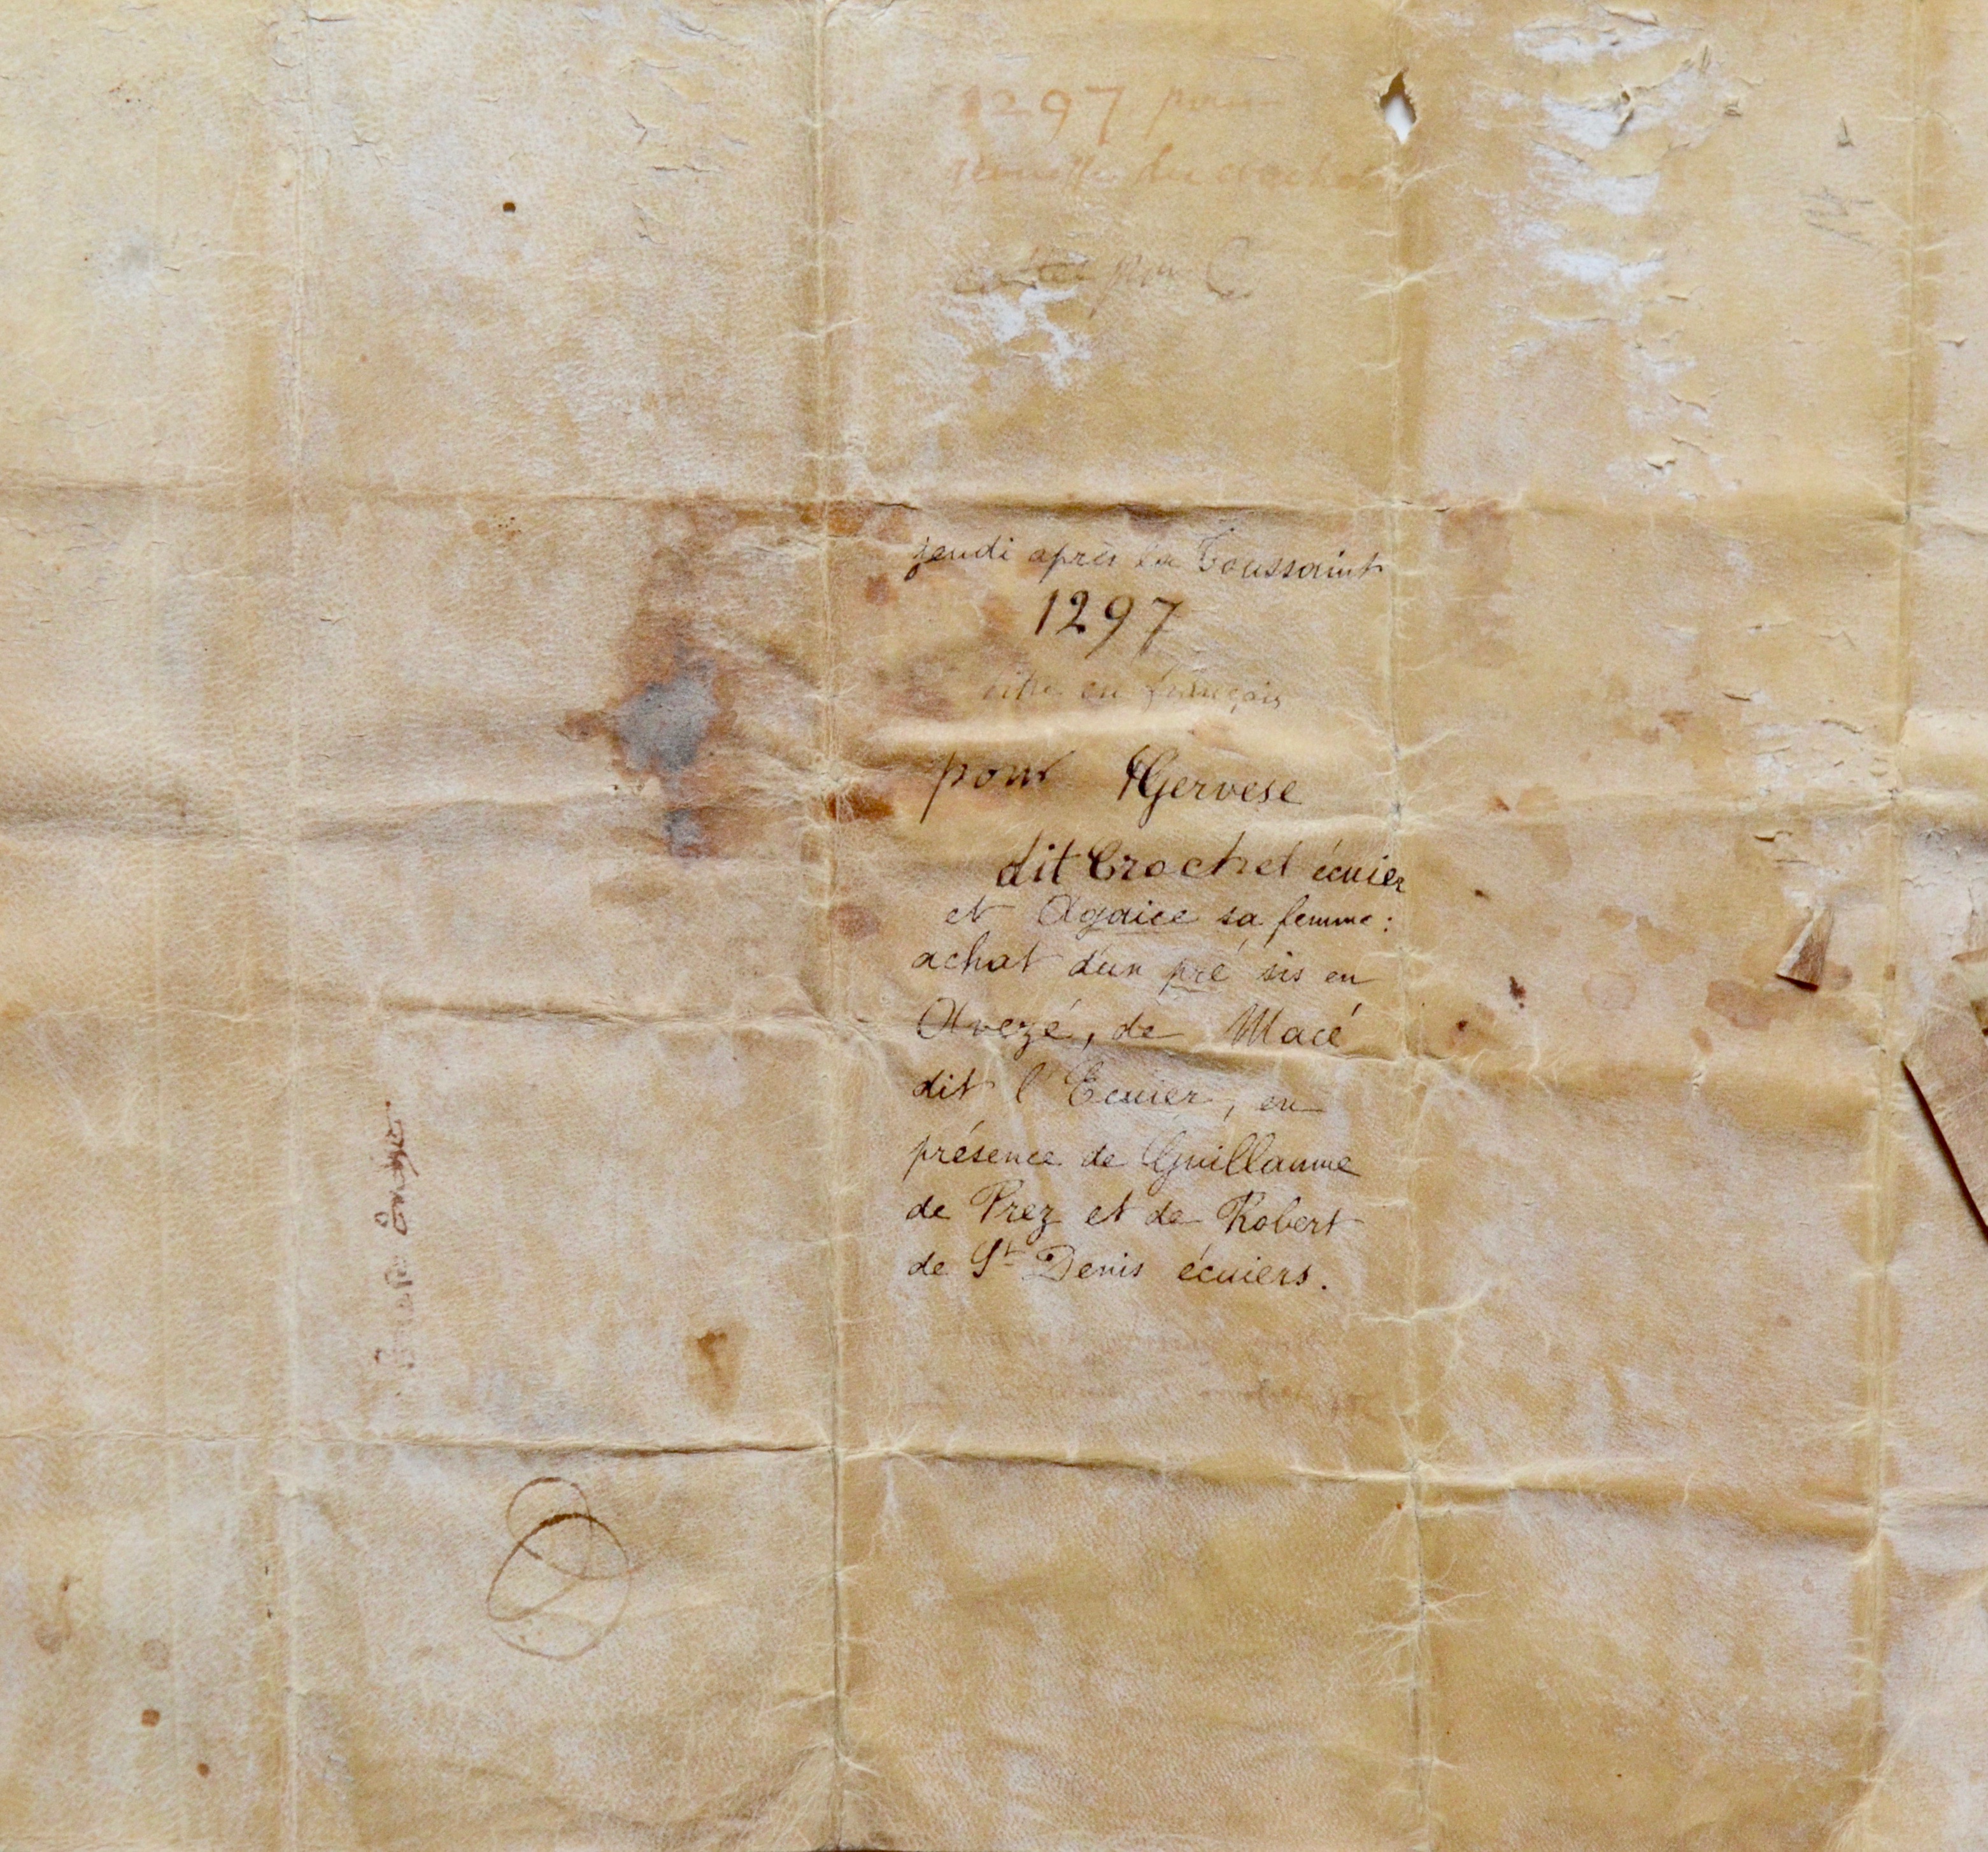 1297 pour
jeudi après la Toussaint
1297
titre en français
pour Gervese
dit Crochet écuier
et Agaice sa femme :
achat d'un pré sis en
Avezé, de Macé
dit l'Ecuier, en
présence de Guillaume
de Prez et de Robert
de St Denis écuiers.